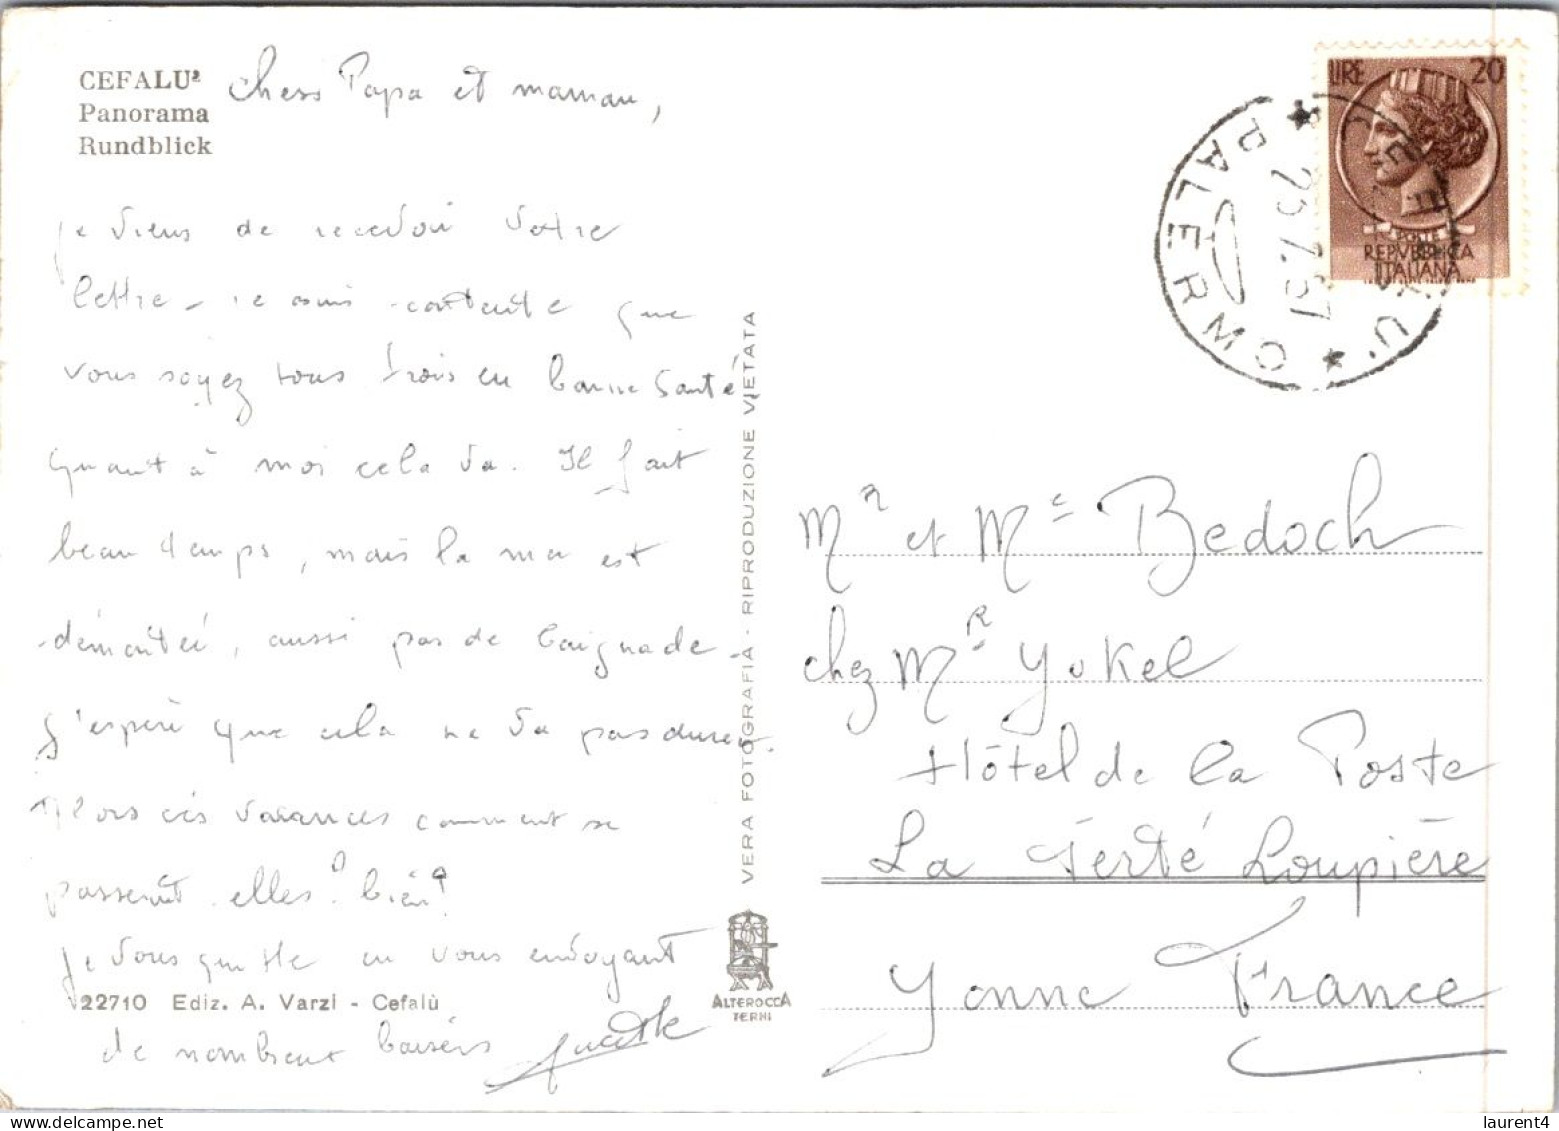 CEFALU'
Panorama
Rundblick
Chers Papa et maman,
je viens de recevoir votre
lettre - je suis contente que
vous soyez tous trois en bonne santé,
quant à moi cela va. Il fait
beau temps, mais la mer est
démontée, aussi pas de baignade -
J'espère que cela ne va pas durer.
Alors ces vacances comment se
passent elles? bien?
je vous quitte en vous envoyant
22710 Ediz. A. Varzi - Cefalù
de nombreux baisers
VERA FOTOGRAFIA - RIPRODUZIONE VIETATA
ALTEROCCA
TERNI
LIRE 20
POSTE
REPVBBLICA
ITALIANA
PALERMO
Mr et Me Bedoch
chez Mr Yokel
Hôtel de la Poste
La Ferté Loupière
Yonne France
laurent4